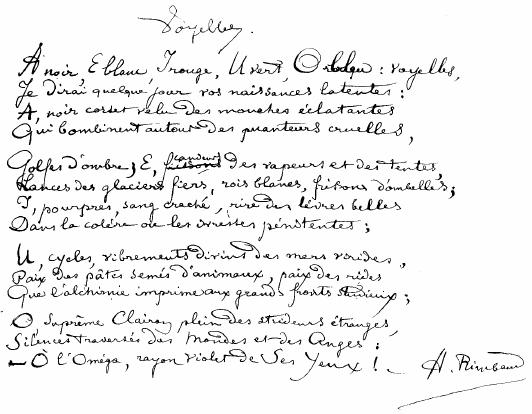 Voyelles.
A noir, E blanc, I rouge, U vert, O bleu : voyelles,
Je dirai quelque jour vos naissances latentes :
A, noir corset velu des mouches éclatantes
Qui bombinent autour des puanteurs cruelles,
Golfes d'ombre ; E, candeurs des vapeurs et des tentes,
Lances des glaciers fiers, rois blancs, frissons d'ombelles ;
I, pourpres, sang craché, rire des lèvres belles
Dans la colère ou les ivresses pénitentes ;
U, cycles, vibrements divins des mers virides,
Paix des pâtis semés d'animaux, paix des rides
Que l'alchimie imprime aux grands fronts studieux ;
O, suprême Clairon plein des strideurs étranges,
Silences traversés des Mondes et des Anges :
— Ô l'Oméga, rayon violet de Ses Yeux ! — A. Rimbaud